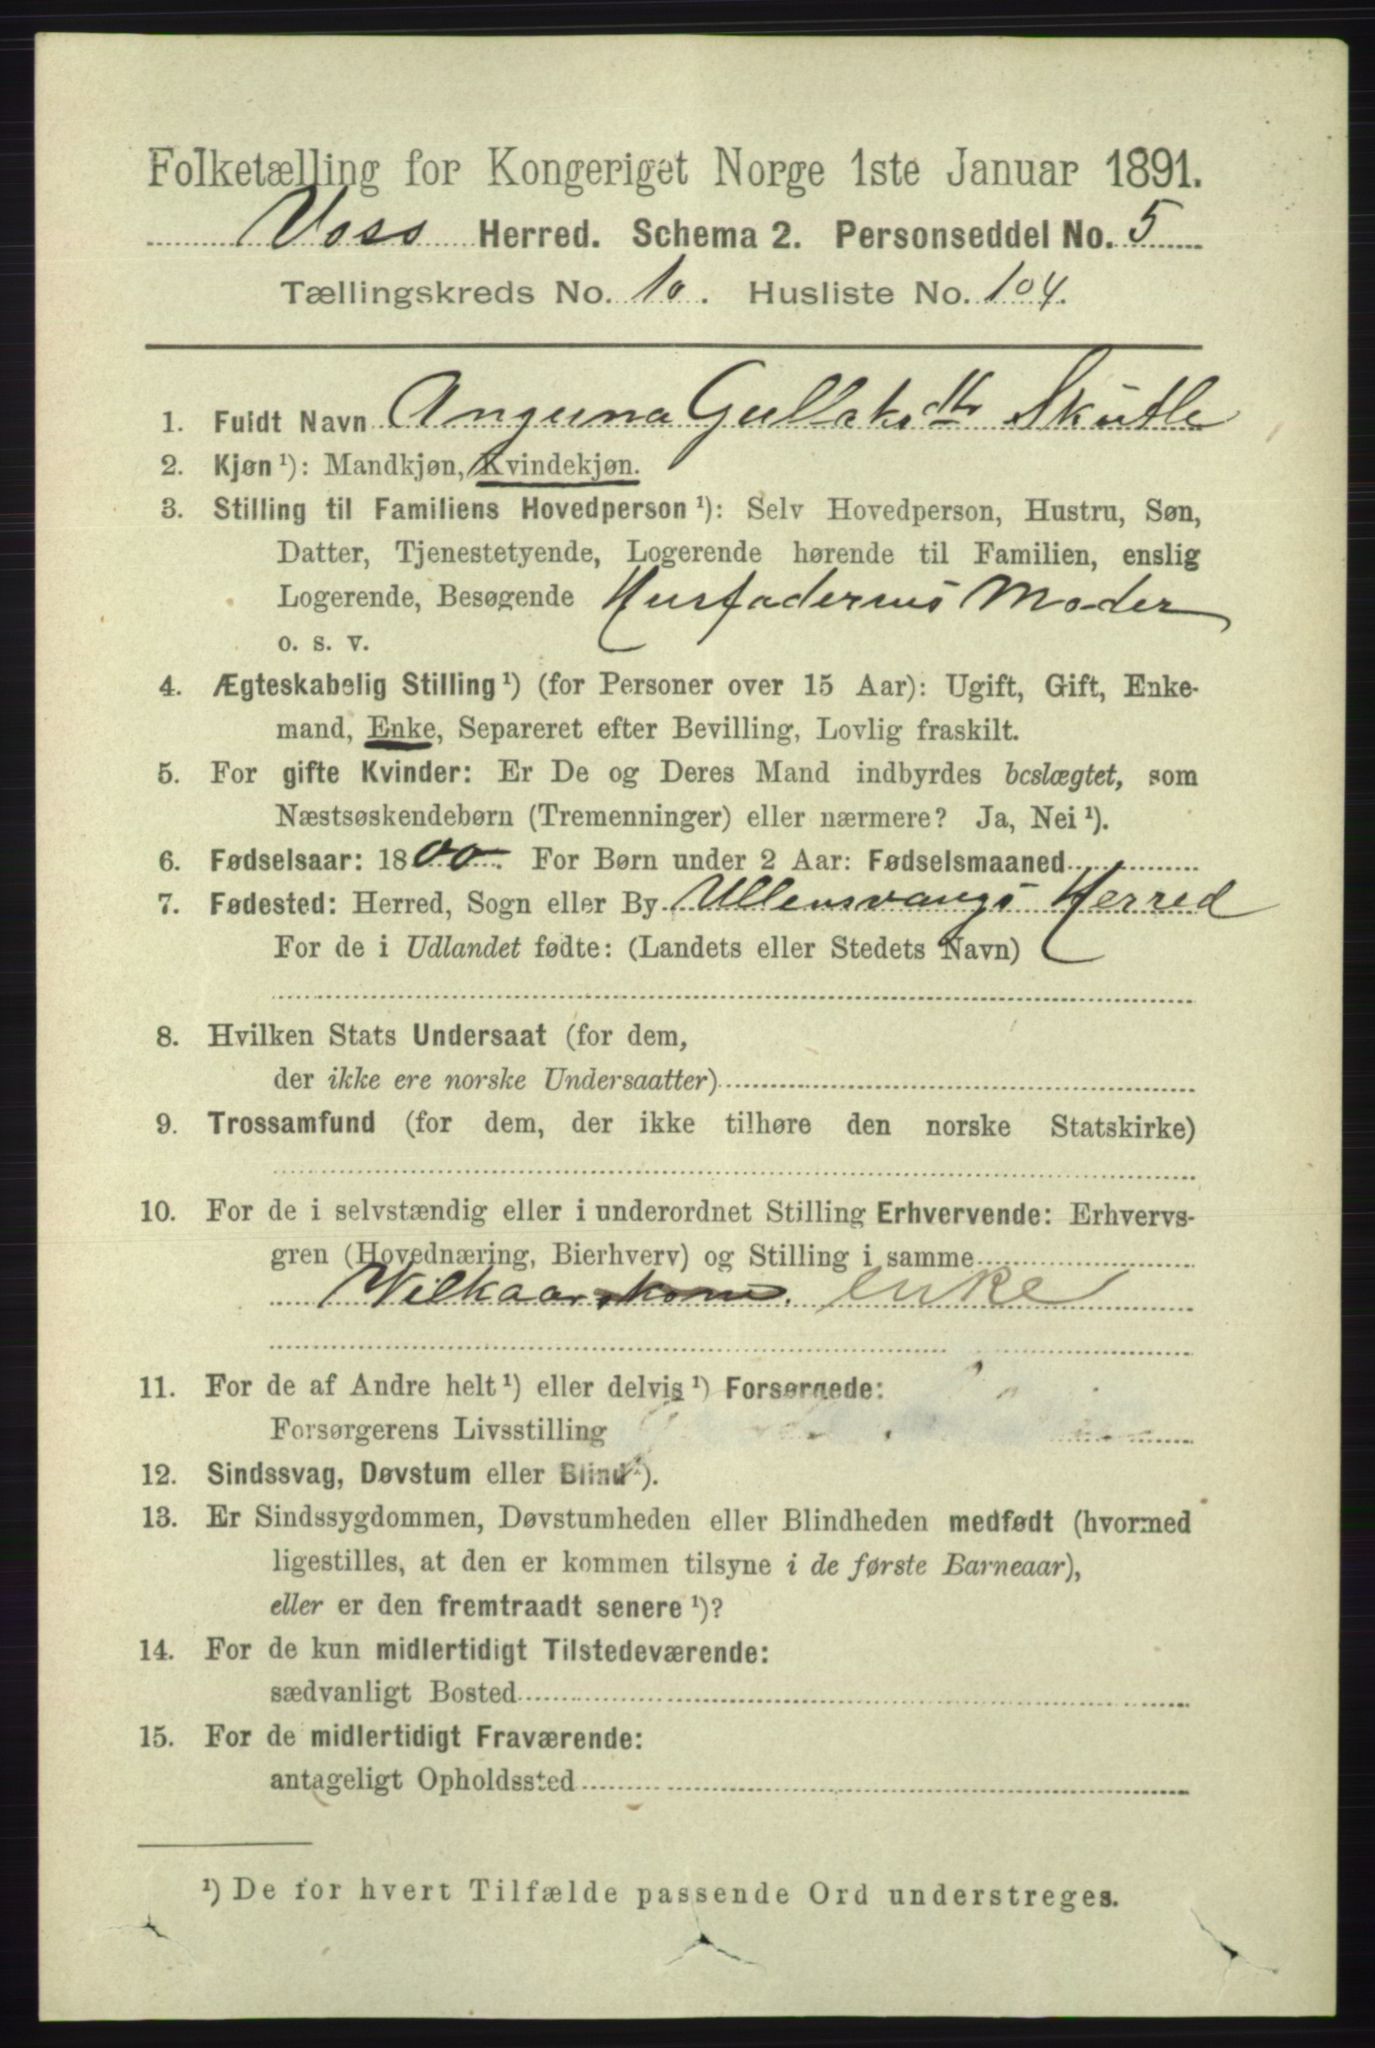 Folketælling for Kongeriget Norge 1ste Januar 1891.
Voss Herred. Schema 2. Personseddel No. 5
Tællingskreds No. 10. Husliste No. 104.
1. Fuldt Navn Anguna Gullaksdtr Skutle
2. Kjøn¹): Mandkjøn, Kvindekjøn.
3. Stilling til Familiens Hovedperson¹): Selv Hovedperson, Hustru, Søn,
Datter, Tjenestetyende, Logerende hørende til Familien, enslig
Logerende, Besøgende Husfaderens Moder
o. s. v.
4. Ægteskabelig Stilling¹) (for Personer over 15 Aar): Ugift, Gift, Enke-
mand, Enke, Separeret efter Bevilling, Lovlig fraskilt.
5. For gifte Kvinder: Er De og Deres Mand indbyrdes beslægtet, som
Næstsøskendebørn (Tremenninger) eller nærmere? Ja, Nei¹).
6. Fødselsaar: 1800. For Børn under 2 Aar: Fødselsmaaned
7. Fødested: Herred, Sogn eller By Ullensvangs Herred
For de i Udlandet fødte: (Landets eller Stedets Navn)
8. Hvilken Stats Undersaat (for dem,
der ikke ere norske Undersaatter)
9. Trossamfund (for dem, der ikke tilhøre den norske Statskirke)
10. For de i selvstændig eller i underordnet Stilling Erhvervende: Erhvervs-
gren (Hovednæring, Bierhverv) og Stilling i samme
Vilkaarskone. enke
11. For de af Andre helt¹) eller delvis¹) Forsørgede:
Forsørgerens Livsstilling
12. Sindssvag, Døvstum eller Blind¹).
13. Er Sindssygdommen, Døvstumheden eller Blindheden medfødt (hvormed
ligestilles, at den er kommen tilsyne i de første Barneaar),
eller er den fremtraadt senere¹)?
14. For de kun midlertidigt Tilstedeværende:
sædvanligt Bosted
15. For de midlertidigt Fraværende:
antageligt Opholdssted
¹) De for hvert Tilfælde passende Ord understreges.